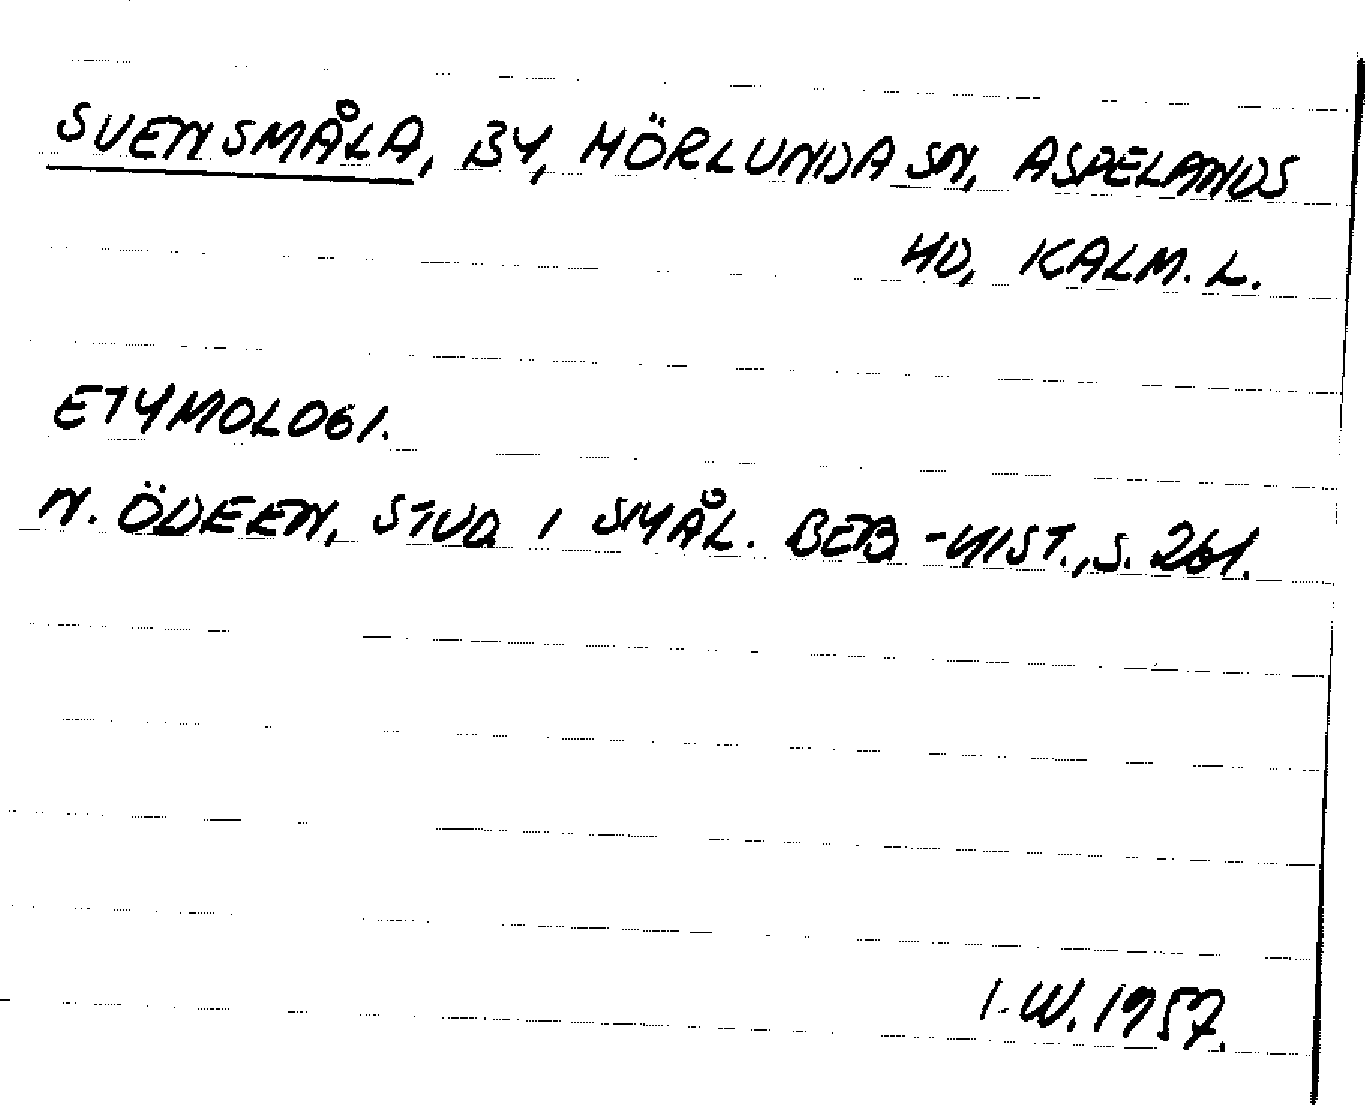 SVENSMÅLA, BY, MÖRLUNDA SN, ASPELANDS
HD, KALM. L.
ETYMOLOGI.
N. ÖDEEN, STUD I SMÅL. BEB-HIST., S. 261.
I.W. 1957.